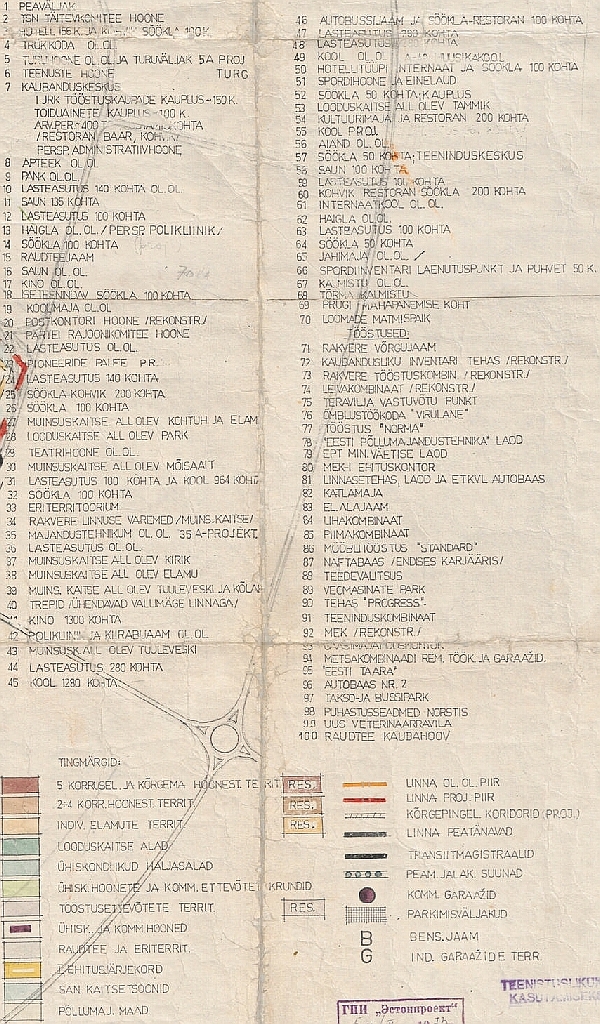 1 PEAVÄLJAK
2 TSN TÄITEVKOMITEE HOONE
3 HOTELL K. SÖÖKLA 100 K.
4 TRÜKIKODA OL.OL
5 TURUHOONE OL.OL JA TURUVÄLJAK 5A PROJ
6 TEENUSTE HOONE TURG
7 KAUBANDUSKESKUS
1 JRK TÖÖSTUSKAUPADE KAUPLUS-150 K.
TOIDUAINETE KAUPLUS-100 K.
/RESTORAN, BAAR,
PERSP. ADMINISTRATIIVHOONE
8 APTEEK OL.OL
9 PANK OL.OL
10 LASTEASUTUS 140 KOHTA OL.OL.
11 SAUN 135 KOHTA
12 LASTEASUTUS 100 KOHTA
13 HAIGLA OL.OL. /PERSP. POLIKLIINIK/
14 SÖÖKLA 100 KOHTA
15 RAUDTEEJAAM
16 SAUN OL.OL.
17 KINO OL.OL.
18 ISETEENINDAV SÖÖKLA 100 KOHTA
19 KOOLIMAJA OL.OL
20 POSTKONTORI HOONE /REKONSTR./
21 PARTEI RAJOONIKOMITEE HOONE
22 LASTEASUTUS OL.OL.
23 PIONEERIDE PALEE PR.
24 LASTEASUTUS 140 KOHTA
25 SÖÖKLA-KOHVIK 200 KOHTA
26 SÖÖKLA 100 KOHTA
27 MUINSUSKAITSE ALL OLEV KOHTUH JA ELAM
28 LOODUSKAITSE ALL OLEV PARK
29 TEATRIHOONE OL.OL.
30 MUINSUSKAITSE ALL OLEV MÕISAAIT
31 LASTEASUTUS 100 KOHTA JA KOOL 964 KOHT
32 SÖÖKLA 100 KOHTA
33 ERITERRITOORIUM
34 RAKVERE LINNUSE VAREMED /MUINS.KAITSE/
35 MAJANDUSTEHNIKUM OL.OL. "35 A-PROJEKT
36 LASTEASUTUS OL.OL.
37 MUINSUSKAITSE ALL OLEV KIRIK
38 MUINSUSKAITSE ALL OLEV ELAMU
39 MUINS. KAITSE ALL OLEV TUULEVESKI JA KÕLAK
40 TREPID /ÜHENDAVAD VALLIMÄGE LINNAGA/
41 KINO 1300 KOHTA
42 POLIKLIINIK JA KIIRABIJAAM OL.OL
43 MUINSUSK. ALL OLEV TUULEVESKI
44 LASTEASUTUS 280 KOHTA
45 KOOL 1280 KOHTA
46 AUTOBUSSIJAAM JA SÖÖKLA-RESTORAN 100 KOHTA
47 LASTEASUTUS 280 KOHTA
48 LASTEASUTUS KOHTA
49 KOOL OL.OL.
50 HOTELLITÜÜPI INTERNAAT JA SÖÖKLA 100 KOHTA
51 SPORDIHOONE JA EINELAUD
52 SÖÖKLA 50 KOHTA; KAUPLUS
53 LOODUSKAITSE ALL OLEV TAMMIK
54 KULTUURIMAJA JA RESTORAN 200 KOHTA
55 KOOL PROJ.
56 AIAND OL.OL.
57 SÖÖKLA 50 KOHTA; TEENINDUSKESKUS
58 SAUN 100 KOHTA
59 LASTEASUTUS KOHTA
60 KOHVIK RESTORAN SÖÖKLA 200 KOHTA
61 INTERNAATKOOL OL.OL.
62 HAIGLA OL.OL.
63 LASTEASUTUS 100 KOHTA
64 SÖÖKLA 50 KOHTA
65 JAHIMAJA OL.OL.
66 SPORDIINVENTARI LAENUTUSPUNKT JA PUHVET 50 K.
67 KALMISTU OL.OL.
68 TÕRMA KALMISTU
69 PRÜGI MAHAPANEMISE KOHT
70 LOOMADE MATMISPAIK
TÖÖSTUSED:
71 RAKVERE VÕRGUJAAM
72 KAUBANDUSLIKU INVENTARI TEHAS /REKONSTR./
73 RAKVERE TÖÖSTUSKOMBIN. /REKONSTR./
74 LEIVAKOMBINAAT /REKONSTR./
75 TERAVILJA VASTUVÕTU PUNKT
76 ÕMBLUSTÖÖKODA "VIRULANE"
77 TÖÖSTUS "NORMA"
78 "EESTI PÕLLUMAJANDUSTEHNIKA" LAOD
79 EPT MIN.VÄETISE LAOD
80 MEK-I EHITUSKONTOR
81 LINNASETEHAS, LAOD JA ETKVL AUTOBAAS
82 KATLAMAJA
83 EL.ALAJAAM
84 LIHAKOMBINAAT
85 PIIMAKOMBINAAT
86 MÖÖBLITÖÖSTUS "STANDARD"
87 NAFTABAAS /ENDISES KARJÄÄRIS/
88 TEEDEVALITSUS
89 VEOMASINATE PARK
90 TEHAS "PROGRESS"
91 TEENINDUSKOMBINAAT
92 MEK /REKONSTR./
93
94 METSAKOMBINAADI REM. TÖÖK. JA GARAAŽID.
95 "EESTI TAARA"
96 AUTOBAAS NR. 7
97 TAKSO-JA BUSSIPARK
98 PUHASTUSSEADMED NÕRSTIS
99 UUS VETERINAARRAVILA
100 RAUDTEE KAUBAHOOV
TINGMÄRGID:
5 KORRUSEL. JA KÕRGEMA HOONEST. TERRIT. RES.
2-4 KORR. HOONEST. TERRIT. RES.
INDIV. ELAMUTE TERRIT. RES.
LOODUSKAITSE ALAD
ÜHISKONDLIKUD HALJASALAD
ÜHISK. HOONETE JA KOMM. ETTEVÕTETE KRUNDID
TÖÖSTUSETTEVÕTETE TERRIT. RES.
ÜHISK. JA KOMM. HOONED
RAUDTEE JA ERITERRIT.
I EHITUSJÄRJEKORD
SAN. KAITSETSOONID
PÕLLUMAJ. MAAD
LINNA OL.OL. PIIR
LINNA PROJ. PIIR
KÕRGEPINGEL. KORIDORID (PROJ.)
LINNA PEATÄNAVAD
TRANSIITMAGISTRAALID
PEAM. JALAK. SUUNAD
KOMM. GARAAŽID
PARKIMISVÄLJAKUD
B BENS. JAAM
G IND. GARAAŽIDE TERR.
TEENISTUSLIKUKS
KASUTAMISEKS
ГПИ „Эстонпроект"